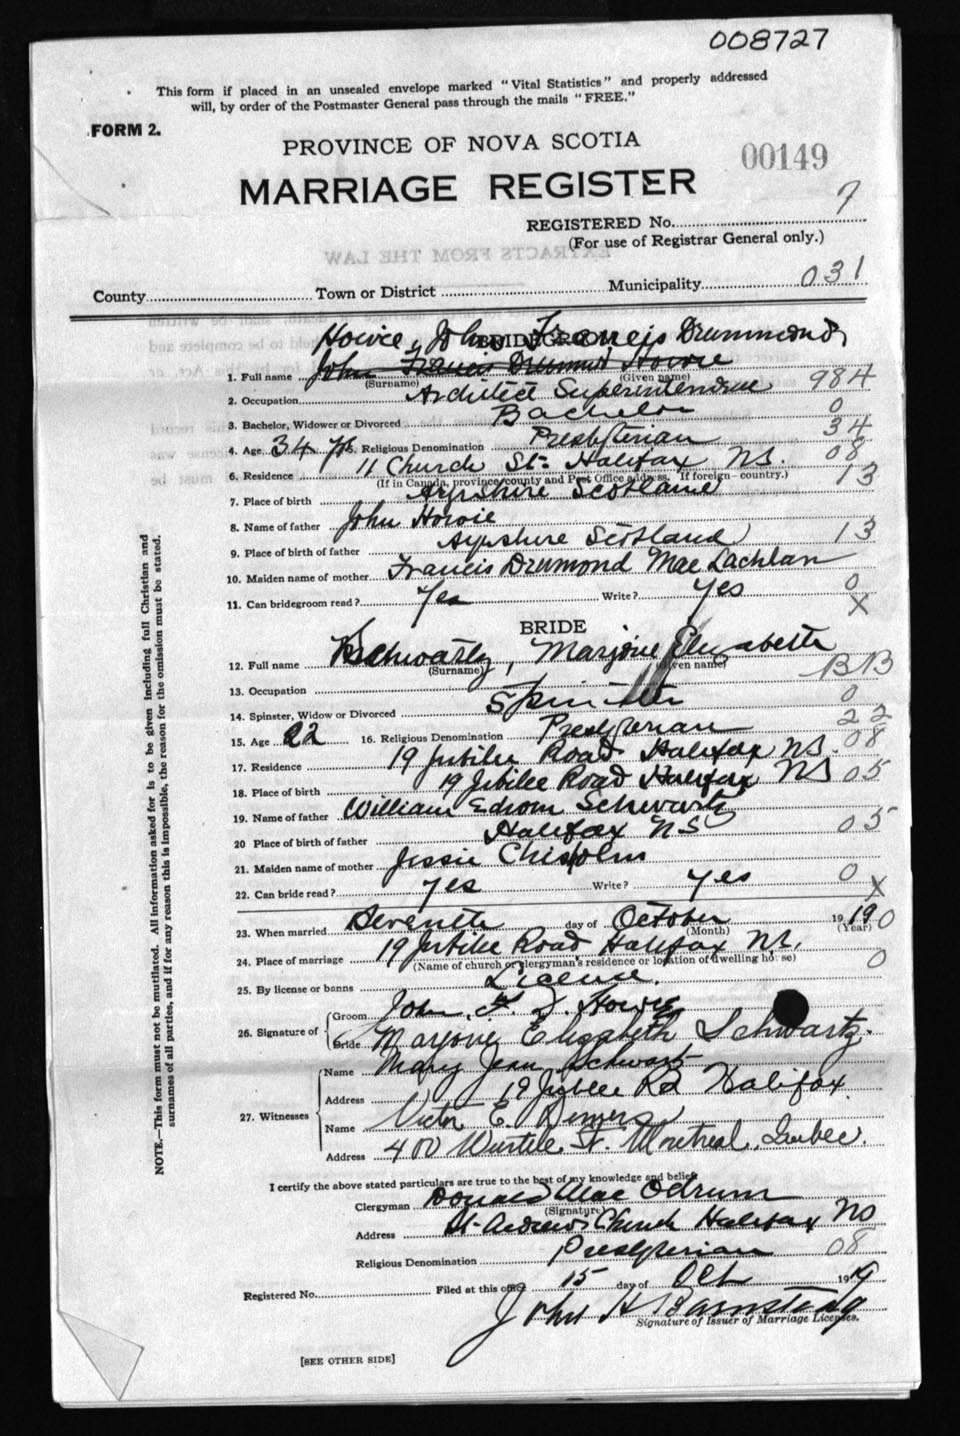 008727
This form if placed in an unsealed envelope marked "Vital Statistics" and properly addressed
will, by order of the Postmaster General pass through the mails "FREE."
FORM 2.
PROVINCE OF NOVA SCOTIA
00149
MARRIAGE REGISTER
7
REGISTERED No.
(For use of Registrar General only.)
EXTRACTS FROM THE LAW
County Town or District Municipality 031
Howie, John Francis Drummond
BRIDEGROOM
1. Full name John Francis Drumond Howie
(Surname) (Given name)
2. Occupation Architect Superintendent 984
3. Bachelor, Widower or Divorced Bachelor 0
4. Age 34 yrs 5. Religious Denomination Presbyterian 34
6. Residence 11 Church St. Halifax N.S. 08
(If in Canada, province, county and Post Office address. If foreign—country.)
7. Place of birth Ayrshire Scotland 13
8. Name of father John Howie
9. Place of birth of father Ayrshire Scotland 13
10. Maiden name of mother Francis Drumond MacLachlan
11. Can bridegroom read? Yes Write? Yes 0
X
BRIDE
12. Full name Schwartz, Marjorie Elizabeth
(Surname) (Given name)
BB
13. Occupation
14. Spinster, Widow or Divorced Spinster 0
15. Age 22 16. Religious Denomination Presbyterian 22
17. Residence 19 Jubilee Road Halifax NS. 08
18. Place of birth 19 Jubilee Road Halifax NS 05
19. Name of father William Edson Schwartz
20 Place of birth of father Halifax NS 05
21. Maiden name of mother Jessie Chisholm
22. Can bride read? yes Write? yes 0
X
23. When married Seventh day of October 1919 0
(Month) (Year)
24. Place of marriage 19 Jubilee Road Halifax N.S.
(Name of church or clergyman's residence or location of dwelling house) 0
25. By license or banns License.
26. Signature of Groom John F. D. Howie
Bride Marjorie Elizabeth Schwartz.
27. Witnesses Name Mary Jean Schwartz
Address 19 Jubilee Rd Halifax.
Name Victor E.
Address 400 St. Montreal, Quebec.
I certify the above stated particulars are true to the best of my knowledge and belief
Clergyman Donald Mac Odrum
(Signature)
Address St. Andrews Church Halifax NS
Religious Denomination Presbyterian 08
Registered No. Filed at this office 15 day of Oct 1919
John H Barnstead
Signature of Issuer of Marriage Licenses.
[SEE OTHER SIDE]
NOTE.—This form must not be mutilated. All information asked for is to be given including full Christian and
surnames of all parties, and if for any reason this is impossible, the reason for the omission must be stated.